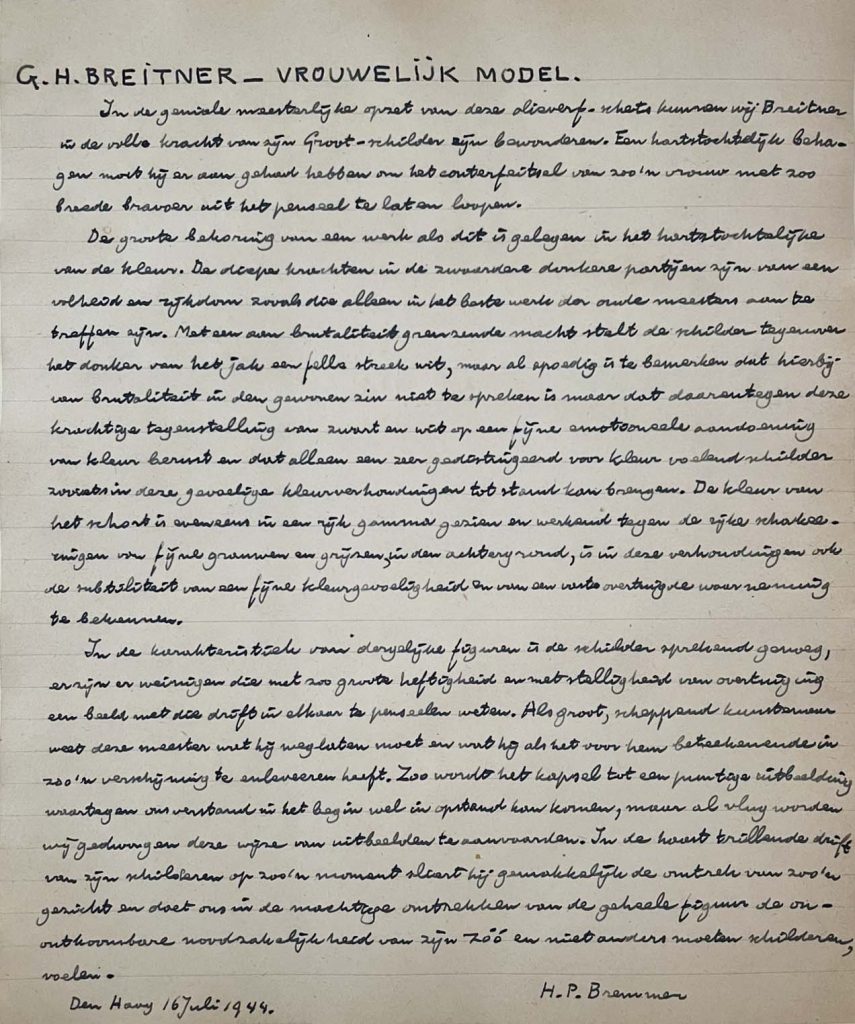 G. H. BREITNER – VROUWELIJK MODEL.
In de geniale meesterlijke opzet van deze olieverf-schets kunnen wij Breitner
in de volle kracht van zijn Groot-schilder zijn bewonderen. Een hartstochtelijk beha-
gen moet hij er aan gehad hebben om het conterfeitsel van zoo'n vrouw met zoo
breede bravoer uit het penseel te laten loopen.
De groote bekoring van een werk als dit is gelegen in het hartstochtelijke
van de kleur. De diepe krachten in de zwaardere donkere partijen zijn van een
volheid en rijkdom zooals die alleen in het beste werk der oude meesters aan te
treffen zijn. Met een aan brutaliteit grenzende macht stelt de schilder tegenover
het donker van het jak een felle streek wit, maar al spoedig is te bemerken dat hierbij
van brutaliteit in den gewonen zin niet te spreken is maar dat daarentegen deze
krachtige tegenstelling van zwart en wit op een fijne emotioneele aandoening
van kleur berust en dat alleen een zeer gedistingeerd voor kleur voelend schilder
zooiets in deze gevoelige kleurverhoudingen tot stand kan brengen. De kleur van
het schort is eveneens in een rijk gamma gezien en werkend tegen de rijke schakee-
ringen van fijne grauwen en grijzen, in den achtergrond, is in deze verhoudingen ook
de subtiliteit van een fijne kleurgevoeligheid en van een vaste overtuigde waarneming
te bekennen.
In de karakteristiek van dergelijke figuren is de schilder sprekend genoeg,
er zijn er weinigen die met zoo groote heftigheid en met stelligheid van overtuiging
een beeld met die drift in elkaar te penseelen weten. Als groot, scheppend kunstenaar
weet deze meester wat hij weglaten moet en wat hij als het voor hem beteekenende in
zoo'n verschijning te enleveeren heeft. Zoo wordt het kapsel tot een puntige uitbeelding
waartegen ons verstand in het begin wel in opstand kan komen, maar al vlug worden
wij gedwongen deze wijze van uitbeelden te aanvaarden. In de haast trillende drift
van zijn schilderen op zoo'n moment sliert hij gemakkelijk de omtrek van zoo'n
gezicht en doet ons in de machtige omtrekken van de geheele figuur de on-
ontkoombare noodzakelijkheid van zijn zóó en niet anders moeten schilderen,
voelen.
Den Haag 16 Juli 1944.
H. P. Bremmer